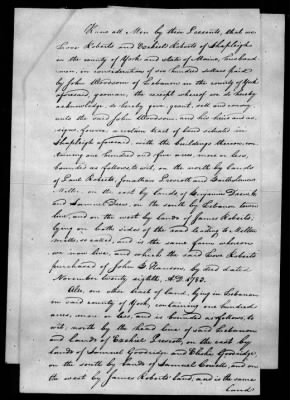 Know all Men by these Presents, that we
Love Roberts and Ezekiel Roberts of Shapleigh
in the county of York and state of Maine, husband
men, in consideration of six hundred dollars paid
by John Woodsom of Lebanon in the county of York
aforesaid, yeoman, the receipt whereof we do hereby
acknowledge, do hereby give, grant, sell and convey
unto the said John Woodsom, and his heirs and as-
signs forever, a certain tract of land situated in
Shapleigh aforesaid, with the buildings thereon, con-
taining one hundred and five acres, more or less,
bounded as follows, to wit, on the north by lands
of Paul Roberts, Jonathan Prescott and Bartholomew
Mills, on the east by lands of Benjamin
and Samuel Drew, on the south by Lebanon town
line, and on the west by lands of James Roberts;
lying on both sides of the road leading to
mills, so called, and is the same farm whereon
we now live, and which the said Love Roberts
purchased of John S. Pearson, by deed dated
November twenty eighth, A.D. 1783.
Also one other tract of land, lying in Lebanon
in said county of York, containing one hundred
acres, more or less, and is bounded as follows, to
wit, north by the head line of said Lebanon
and lands of Ezekiel Prescott, on the east by
lands of Samuel Goodridge and Elisha Goodridge,
on the south by lands of Samuel, and on
the west by James Roberts land, and is the same
land